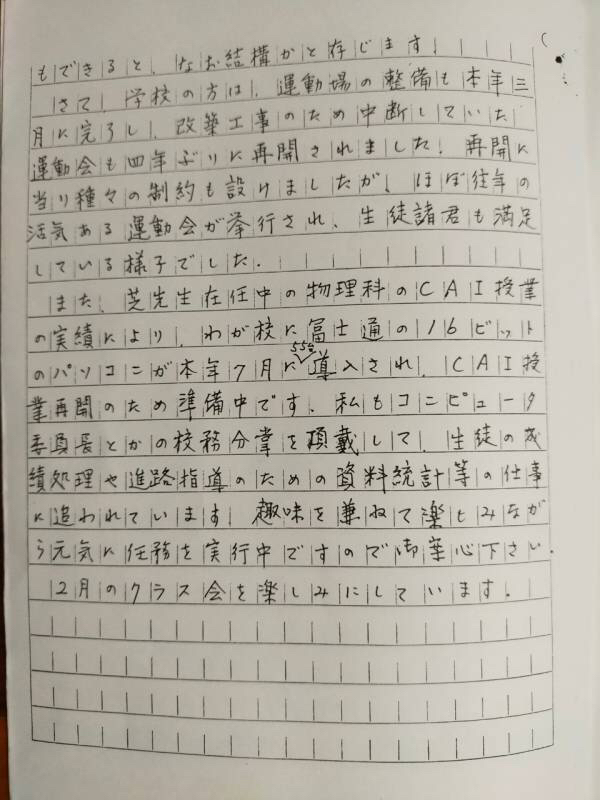 もできると、なお結構かと存じます。
さて、学校の方は、運動場の整備も本年三
月に完了し、改築工事のため中断していた
運動会も四年ぶりに再開されました。再開に
当り種々の制約も設けましたが、ほぼ往年の
活気ある運動会が挙行され、生徒諸君も満足
している様子でした。
また、芝先生在任中の物理科のCAI授業
の実績により、わが校に富士通の16ビット
のパソコンが本年7月に55台導入され、CAI授
業再開のため準備中です。私もコンピュータ
委員長とかの校務分掌を頂戴して、生徒の成
績処理や進路指導のための資料統計等の仕事
に追われています。趣味を兼ねて楽しみなが
ら元気に任務を実行中ですので御安心下さい。
2月のクラス会を楽しみにしています。